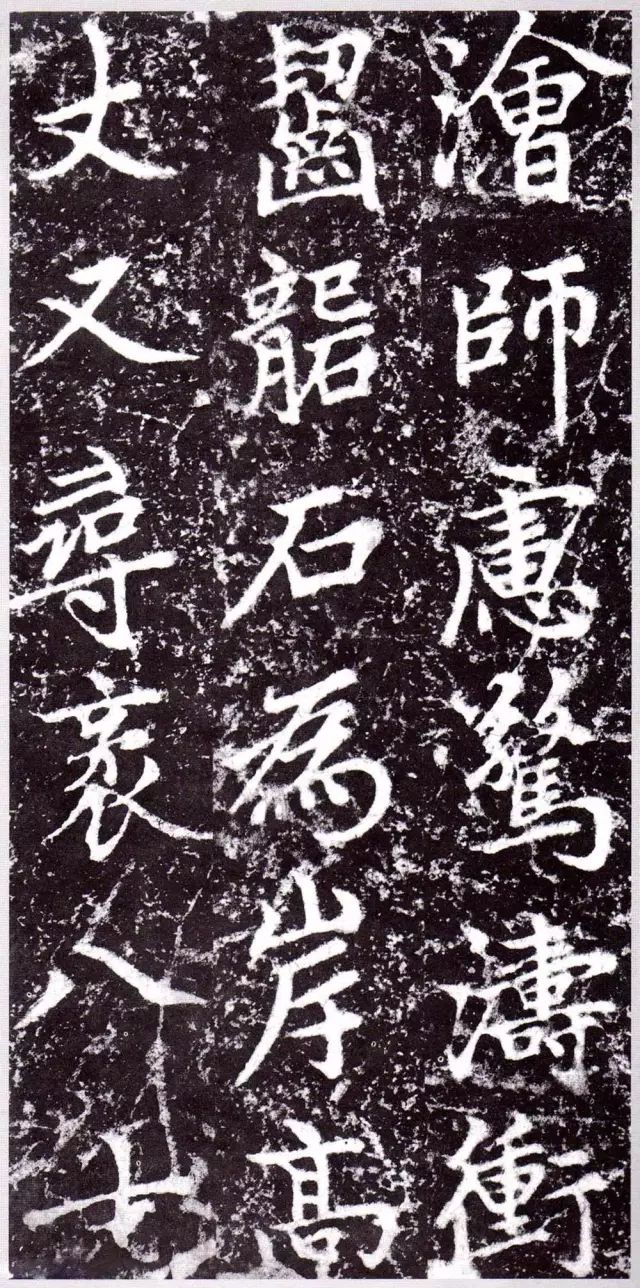 澮師慮驚濤衝
齧龍石為岸高
丈又尋袤八十